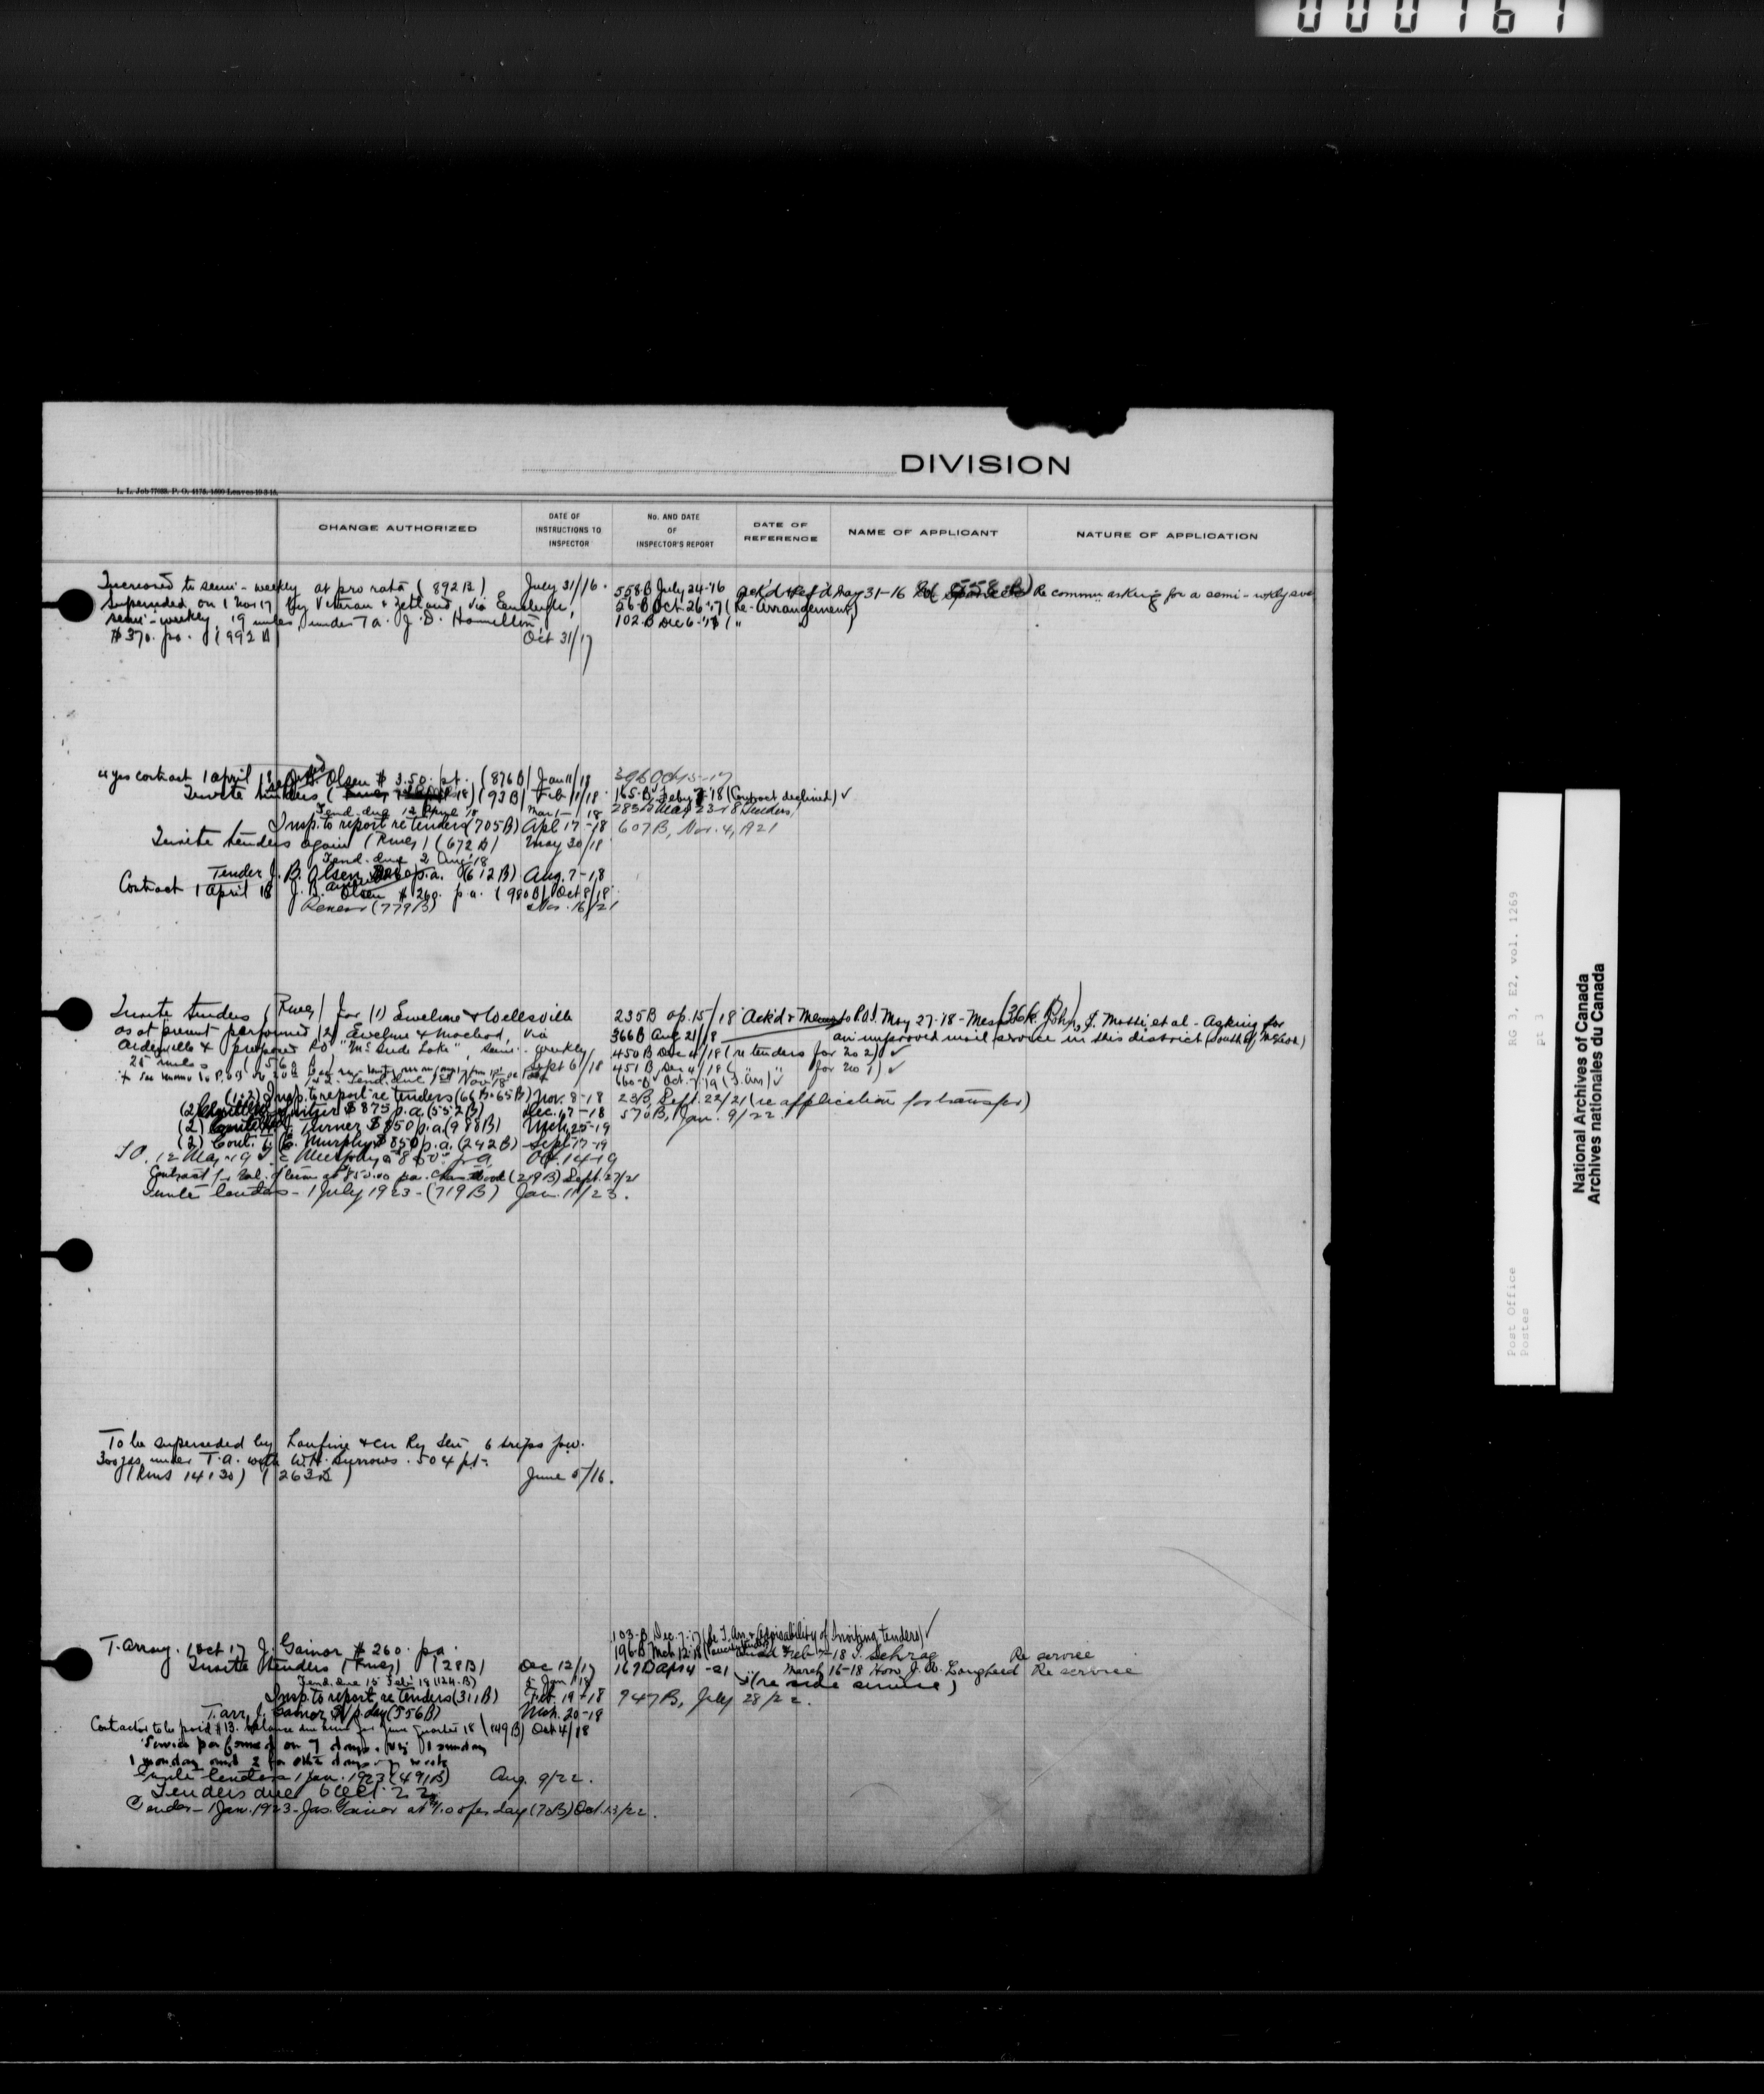 000161
DIVISION
L. L. Job 77099. P. O. 4175. 1600 Leaves-19-8-15.
CHANGE AUTHORIZED
DATE OF INSTRUCTIONS TO INSPECTOR
No. AND DATE OF INSPECTOR'S REPORT
DATE OF REFERENCE
NAME OF APPLICANT
NATURE OF APPLICATION
Increased to semi-weekly at pro rata (892B) July 31/16. 558B July 24-16 Ack'd & Ref'd May 31-16 Re commun asking for a semi-wkly
superseded on 1 Nov 17 by Veteran & Zetland, via 56-B Oct. 26-'17 (Re-Arrangement)
semi-weekly, 19 miles, under T a. J. D. Hamilton, 102-B Dec 6-'17 ( " )
$370. pa. (992 B) Oct 31/17
4 yrs contract 1 april 18 J. B. Olsen $ 3.50. pt. (876B) Jan 11/18
Invite tenders (93B) Feb 1/18 165-B Feby 18 (Contract declined) ✓
Tend. due 12 April '18 Mar 1- 18 May 23-18 Tenders
Insp. to report re tenders (705B) Apl 17-18 607B, Nov. 4, 1921
Invite tenders again (Rmcs) (672 B) May 30/18
Tend. due 2 Aug '18
Tender J. B. Olsen p.a. (612B) Aug. 7-18
Contract 1 April 18 J. B. Olsen $ 260. p.a. (980B) Oct 8/18
Renew (779B) Nov. 16/21
Invite tenders (Rmcs) for (1) Eweline & Wellsville 235B ap. 15/18 Ack'd & Memo to P.O.I. May 27-18 - Messrs John J. Motti et al - Asking for
as at present performed (2) Eweline & Macleod, via 366B Aug 21/18 an improved mail service in this district (South of McLeod)
Ardenville & proposed P.O. "McBride Lake", semi-weekly, 450 B Dec 4/18 (re tenders for No 2) ✓
25 miles Sept 6/18 451 B Dec 4/18 ( for No 1) ✓
Tend. due 1st Nov 18 660-B Oct. 7-19 (T. Arr) ✓
(1 & 2) Insp. to report re tenders (66B & 65B) Nov. 8-18 23B, Sept. 22/21 (re application for transfer)
(2) $875 p.a. (552B) Dec. 17-18 570B, Jan. 9/22.
(2) Turner $850 p.a. (988B) Mch. 25-19
(2) Cont. T. C. Murphy $850 p.a. (242B) Sept 17-19
Murphy a $850 p a Oct. 14-19
Contract for bal. of term at $850.00 pa. (219B) Sept. 27/21
Invite tenders - 1 July 1923 - (719B) Jan. 11/23.
To be superseded by Lanfine & Cn Ry Stn 6 trips p.w.
300 yds under T.A. with W. H. Burrows. 504 pt.
(Rms 14130) (263B) June 5/16.
103-B Dec. 7-'17 (Re T. Arr & Advisability of Inviting tenders) ✓
T. Arrang. 1 Oct 17 J. Gainor $ 260. pa. 196B Mch 12-18 Feb 7-18 J. Schrag Re service
Invite tenders (Rmcs) (28B) Dec 12/17 167B Apr 4-21 March 16-18 Hon. J. A. Lougheed Re service
Tend. due 15 Feb. 18 (124-B) 5 Jan '18 (re side service)
Insp. to report re tenders (311B) Feb. 19-18 947B, July 28/22.
T. arr. J. Gainor $1/p. day (556B) Mch. 20-18
Contractor to be paid $13. balance due June quarter 18 (149 B) Oct 4/18
Service performed on 7 days. viz 1 Sunday
1 monday and 2 for other days of week
Invite tenders 1 Jan. 1923 (491B) Aug. 9/22.
Tenders due 6 Oct. 22
Tender - 1 Jan. 1923 - Jas. Gainor at $1.00 per day (70B) Oct. 13/22.
Post Office
Postes
RG 3, E2, vol. 1269
pt 3
National Archives of Canada
Archives nationales du Canada